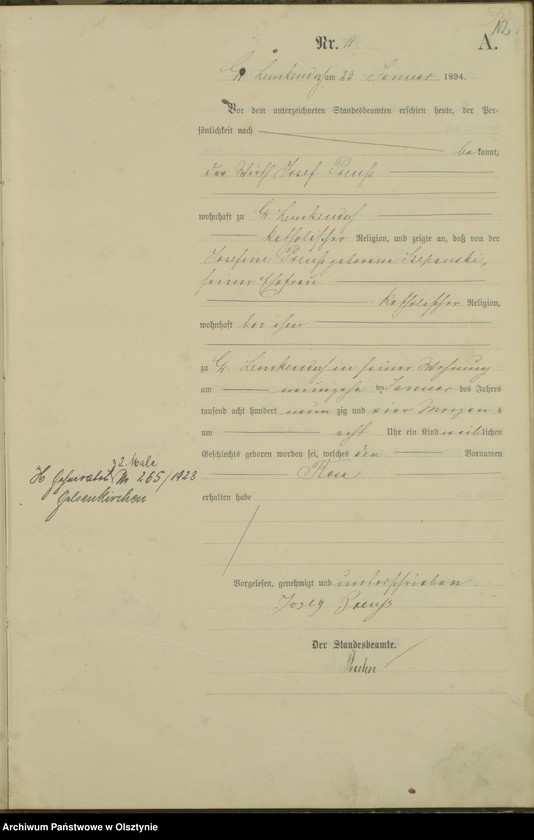 12
Nr. 11
A.
Gr Lemkendorf am 23 Januar 1894.
Vor dem unterzeichneten Standesbeamten erschien heute, der Per-
sönlichkeit nach
bekannt,
der Wirth Josef Preuß
wohnhaft zu Gr Lemkendorf
katholischer Religion, und zeigte an, daß von der
Josefine Preuß geborene Szepanski,
seiner Ehefrau
katholischer Religion,
wohnhaft bei ihm
zu Gr Lemkendorf in seiner Wohnung
am neunzehn ten Januar des Jahres
tausend acht hundert neun zig und vier Morgens
um acht Uhr ein Kind weiblichen
Geschlechts geboren worden sei, welches den Vornamen
Rosa
z 2. Male
H Geheiratet Nr 265/1928
Gelsenkirchen
erhalten habe
Vorgelesen, genehmigt und unterschrieben
Josef Preuß
Der Standesbeamte.
Archiwum Państwowe w Olsztynie